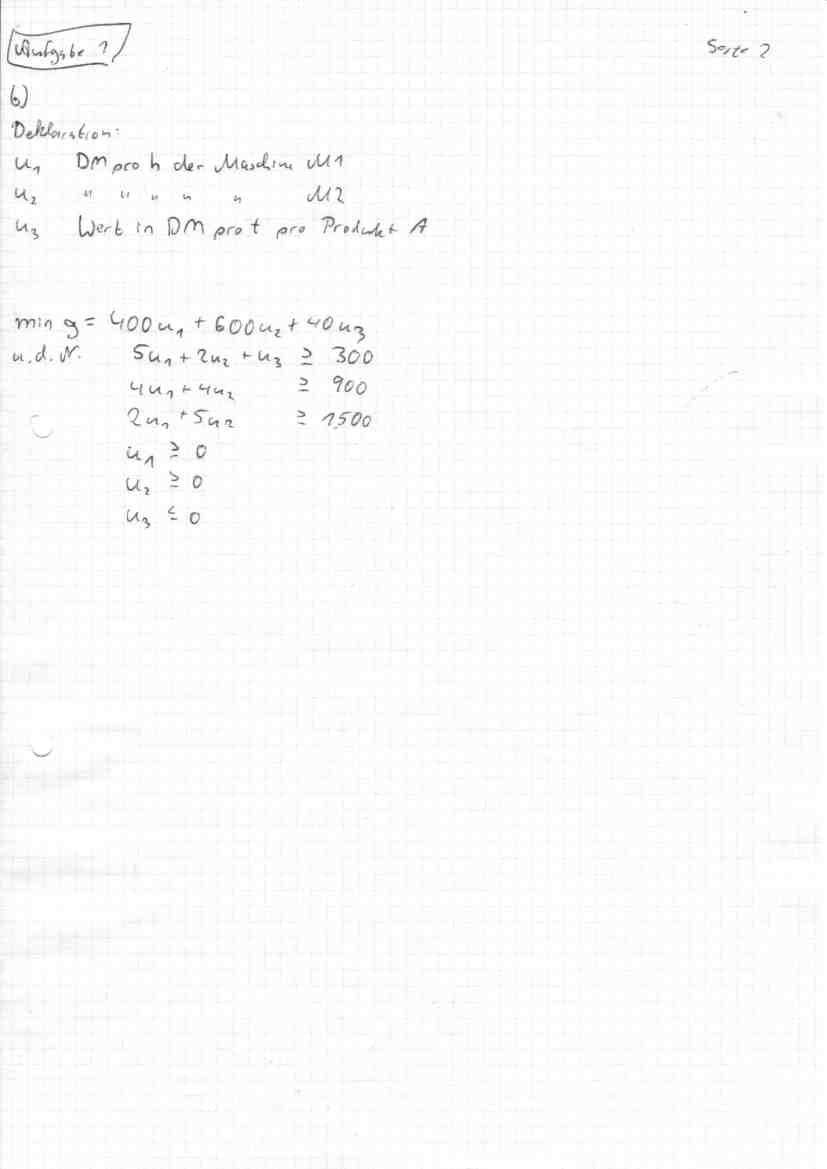 Aufgabe 1
Seite 2
b)
Deklaration:
u₁ DM pro h der Maschine M1
u₂ " " " " " M2
u₃ Wert in DM pro t pro Produkt A
min g = 400u₁ + 600u₂ + 40u₃
u.d.N. 5u₁ + 2u₂ + u₃ ≥ 300
4u₁ + 4u₂ ≥ 900
2u₁ + 5u₂ ≥ 1500
u₁ ≥ 0
u₂ ≥ 0
u₃ ≤ 0